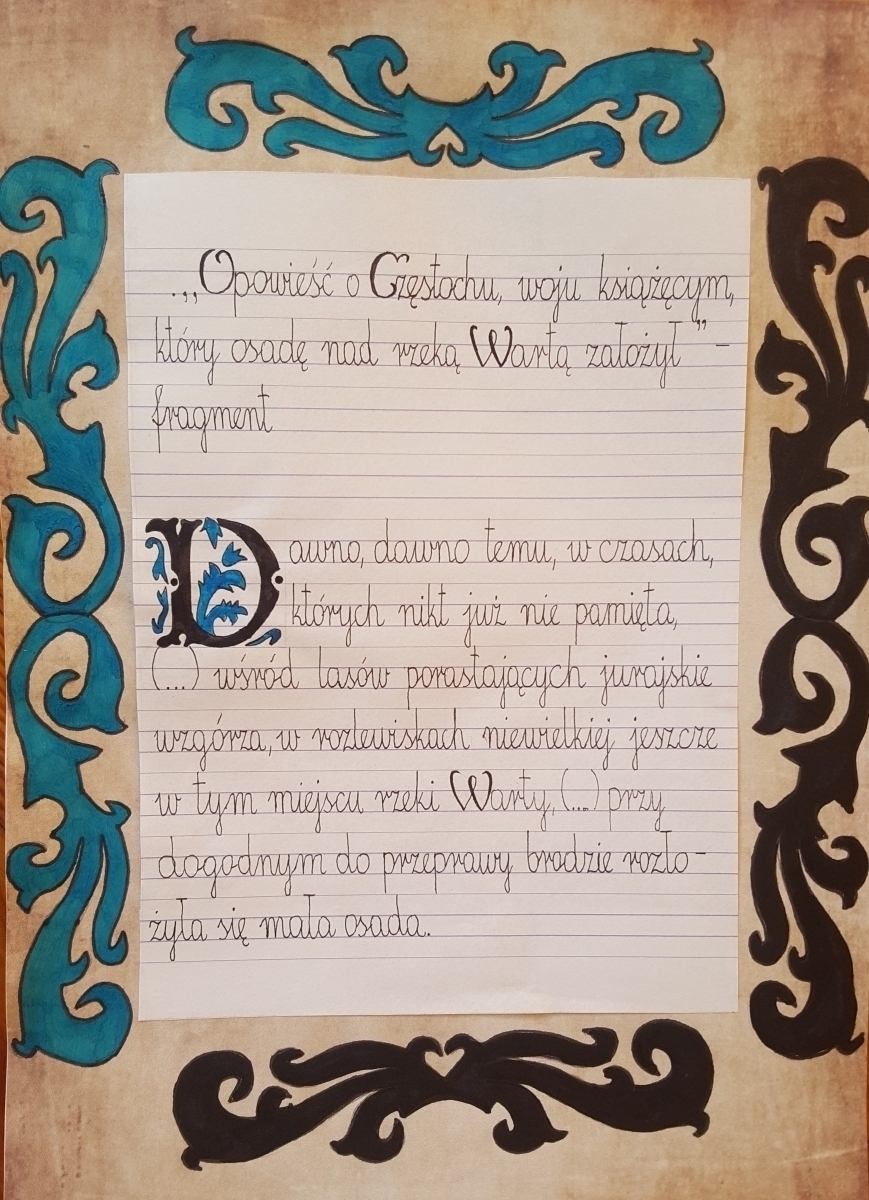 „Opowieść o Częstochu, woju książęcym,
który osadę nad rzeką Wartą założył” –
fragment
Dawno, dawno temu, w czasach,
których nikt już nie pamięta,
(...) wśród lasów porastających jurajskie
wzgórza, w rozlewiskach niewielkiej jeszcze
w tym miejscu rzeki Warty, (...) przy
dogodnym do przeprawy brodzie rozło-
żyła się mała osada.